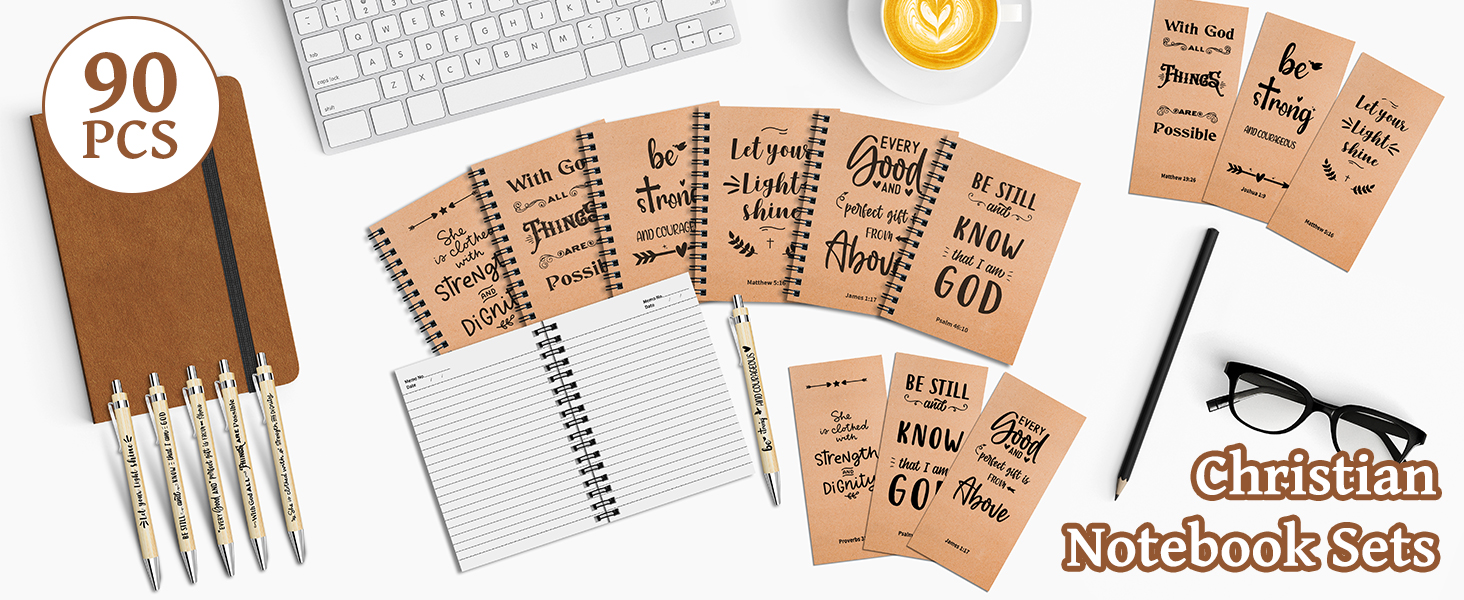 90
PCS
She
is clothed
with
Strength
AND
Dignity
With God
ALL
THINGS
ARE
Possible
be
strong
AND COURAGEOUS
Let your
Light
shine
Matthew 5:16
EVERY
Good
AND
perfect gift
FROM
Above
James 1:17
BE STILL
and
KNOW
that I am
GOD
Psalm 46:10
With God
ALL
THINGS
ARE
Possible
Matthew 19:26
be
strong
AND COURAGEOUS
Joshua 1:9
Let your
Light
shine
Matthew 5:16
Memo No.
Date / /
Memo No.
Date / /
be strong AND COURAGEOUS
Let your Light shine
BE STILL and KNOW that I am GOD
EVERY Good AND perfect gift is FROM Above
With God ALL THINGS ARE Possible
She is clothed with Strength AND Dignity
She
is clothed
with
Strength
AND
Dignity
Proverbs
BE STILL
and
KNOW
that I am
GOD
Psalm
EVERY
Good
AND
perfect gift is
FROM
Above
James 1:17
tab
caps lock
shift
Q W E R T Y U I O P
A S D F G H J K L
Z X C V B N M
shift
Christian
Notebook Sets